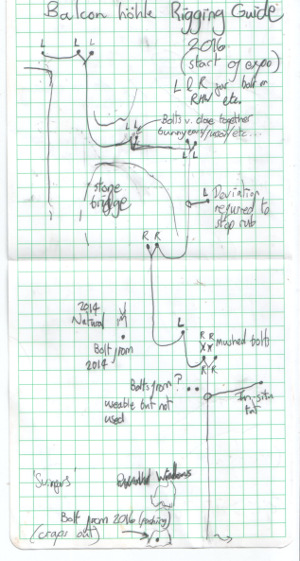 Balcon höhle Rigging Guide
2016
(start of expo)
L & R for bolt in
RHW etc.
L
L L
L L
Bolts v. close together
bunny ears/wool/etc...
L L
stone
bridge
L Deviation
required to
stop rub
R R
2014
Natural
Bolt from
2014
L
R R
X X mushed bolts
R R
Bolts from ?
useable but not
used
In-situ
tat
'Swingers'
Windows
Bolt from 2016 (pushing)
(craps out)